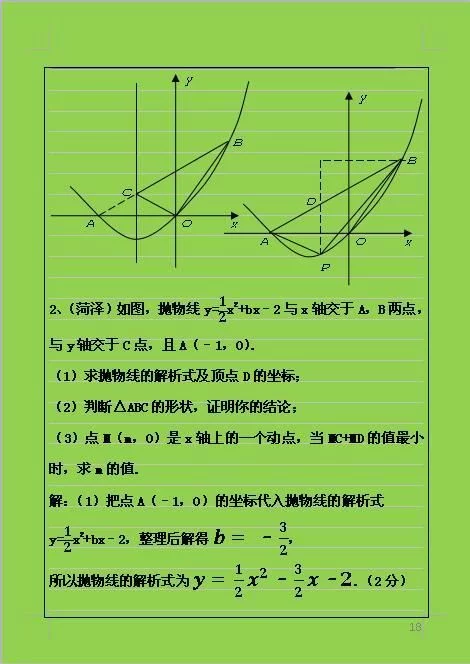 y
B
C
A
O
x
y
B
D
A
O
x
P
2、(菏泽)如图，抛物线 y=1/2x²+bx﹣2 与 x 轴交于 A，B 两点，
与 y 轴交于 C 点，且 A（﹣1，0）．
（1）求抛物线的解析式及顶点 D 的坐标；
（2）判断△ABC 的形状，证明你的结论；
（3）点 M（m，0）是 x 轴上的一个动点，当 MC+MD 的值最小
时，求 m 的值．
解：（1）把点 A（﹣1，0）的坐标代入抛物线的解析式
y=1/2x²+bx﹣2，整理后解得 b = ﹣3/2，
所以抛物线的解析式为 y = 1/2x² ﹣ 3/2x ﹣2．（2 分）
18